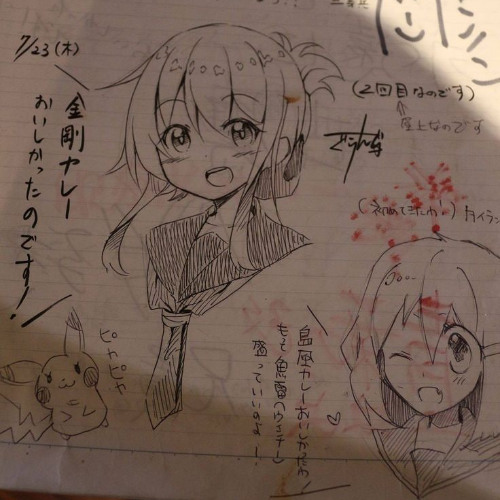 7/23(木)
金剛カレー
おいしかったのです!
(2回目なのです)
屋上なのです
でらんず
(初めてきたわ!)
島風カレーおいしかったわ!
もっと魚雷(ウィンナー)
盛っていいのよー!
ピカピカ